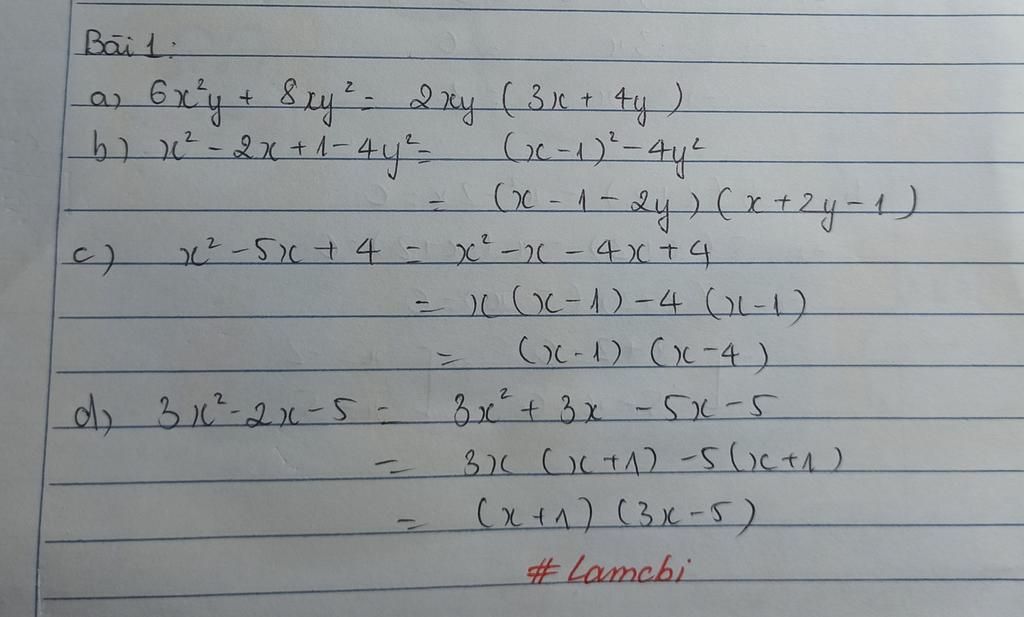 Bài 1:
a) 6x²y + 8xy² = 2xy (3x + 4y)
b) x² - 2x + 1 - 4y² = (x - 1)² - 4y²
= (x - 1 - 2y) (x + 2y - 1)
c) x² - 5x + 4 = x² - x - 4x + 4
= x (x - 1) - 4 (x - 1)
= (x - 1) (x - 4)
d) 3x² - 2x - 5 = 3x² + 3x - 5x - 5
= 3x (x + 1) - 5 (x + 1)
= (x + 1) (3x - 5)
# Lamchi